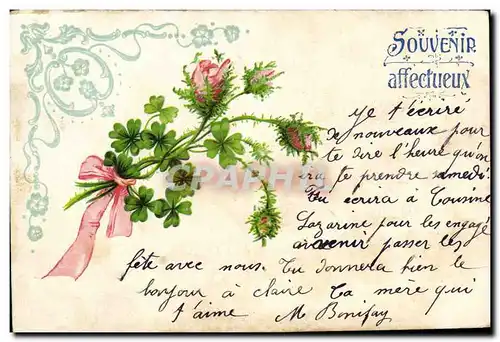 SOUVENIR
affectueux
Je t'écriré
de nouveaux pour
te dire l'heure qu'on
ira te prendre samedi
Tu ecrira à Cousine
Lazarine pour les engagé
avenir passer les
fête avec nous. Tu donnera bien le
bonjour à claire Ta mère qui
t'aime M Bonifay